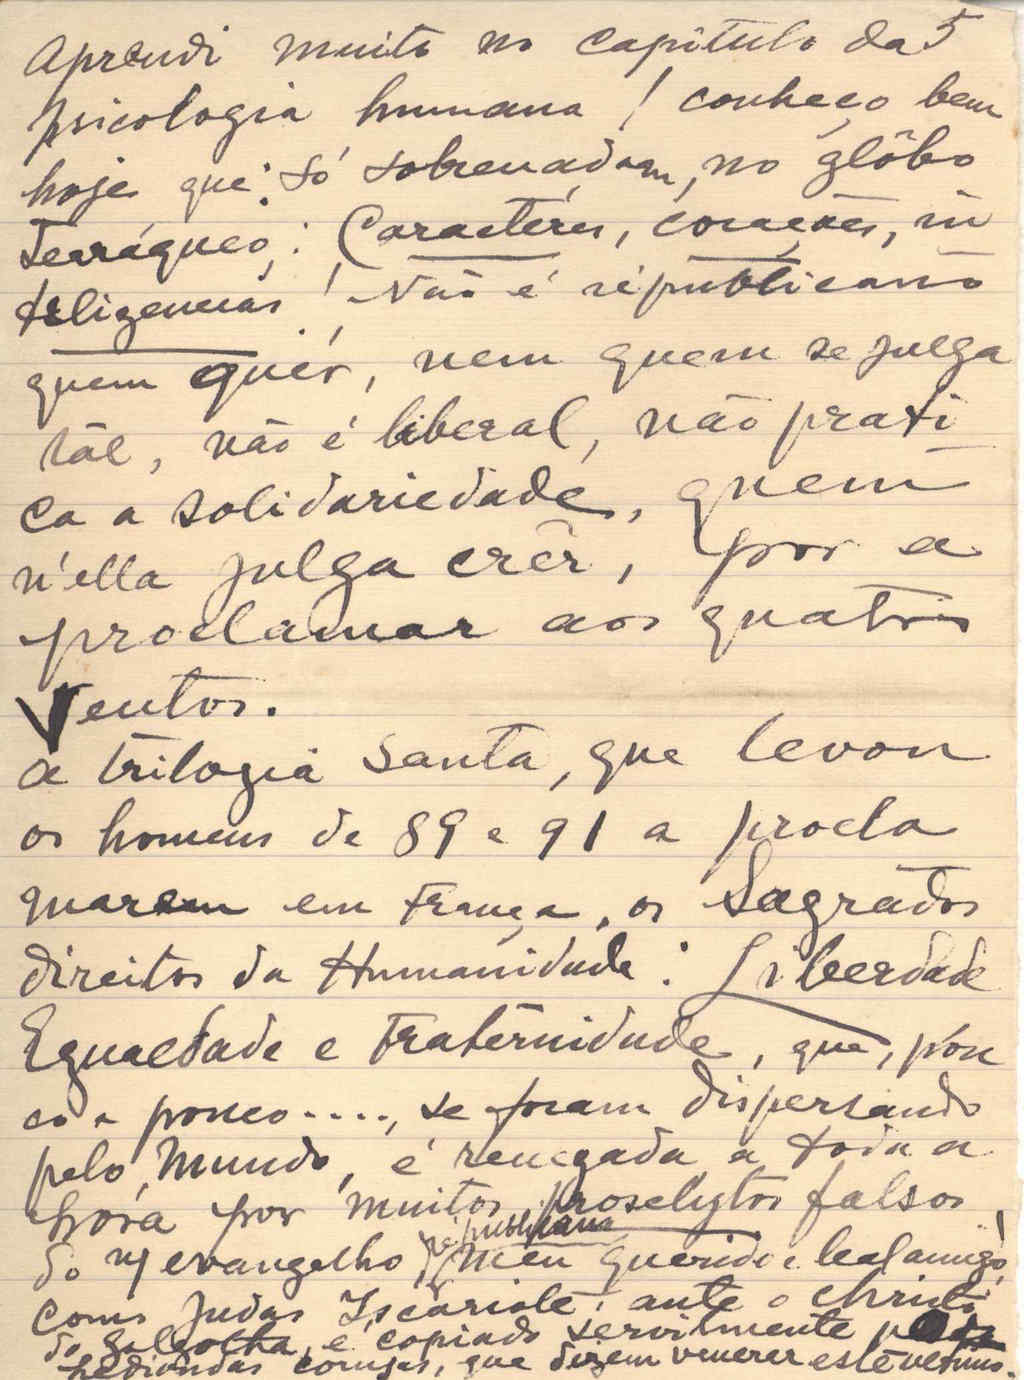 Aprendi muito no capitulo da 5
psicologia humana! conheço bem
hoje que só sobrenadam, no glôbo
Terráqueo: Caractéres, corações, in
teligencias! Não é républicano
quem quér, nem quem se julga
tál, não é liberal, não prati
ca a solidariedade, quem
n'ella julga crêr, por a
proclamar aos quatro
Ventos.
A trilogia santa, que levou
os homens de 89 e 91 a procla
marem em França, os Sagrados
direitos da Humanidade: Liberdade
Egualdade e Fraternidade, que, pou
co a pouco...., se foram dispersando
pelo Mundo, é renegada a toda a
hora por muitos proselytos falsos
républicano
do n/ evangelho, Meu querido e leal amigo!
como Judas Iscariote: ante o Christo
do Golgotha, é copiado servilmente
hediondas corujas, que dizem venerar este